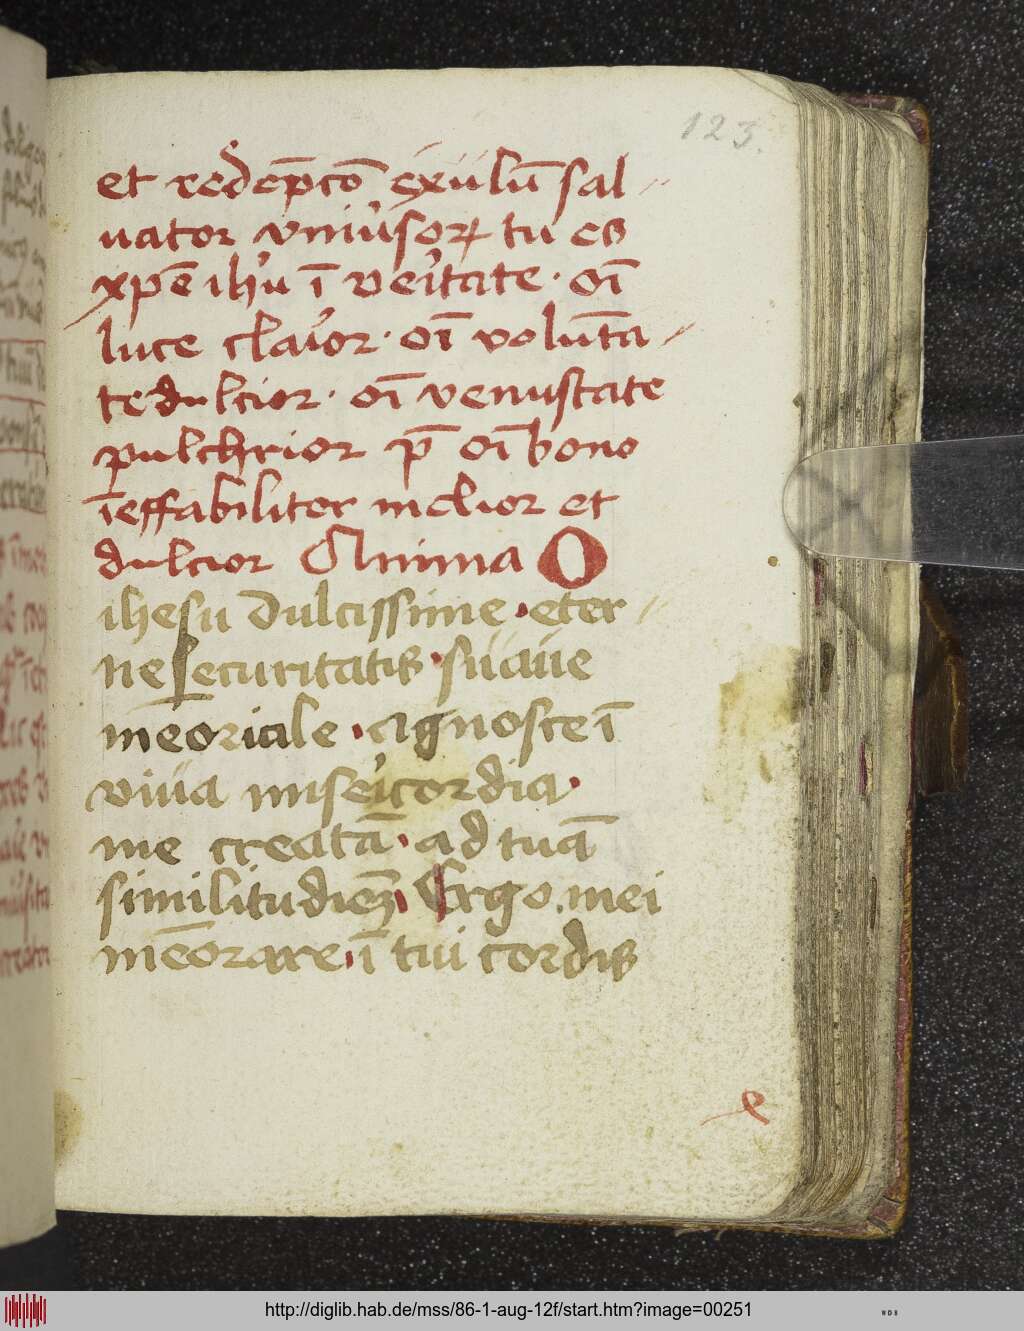 123.
et redēpcō exulū sal
uator vniu͛soꝝ tu es
xp̄e ihu͛ ī ve͛itate · oī
luce cla͛ior · oī volūta
te dulcior · oī venustate
pulchrior p̄ oī bono
īeffabiliter melior et
dulcior Anima O
ihesu dulcissime · eter
ne securitatis · suaue
meoriale · agnosce ī
viua mise͛icordia ·
me creatā · ad tuā
similitudīeꝫ · Ergo . mei
mēorare · ī tui cordis
e
http://diglib.hab.de/mss/86-1-aug-12f/start.htm?image=00251
WDB